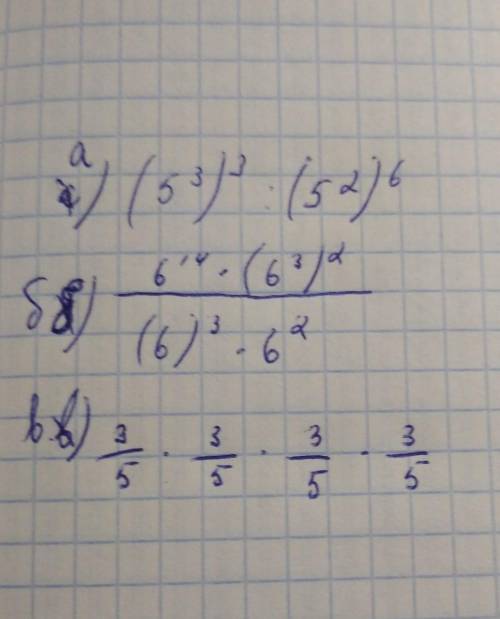 а) (5³)³ : (5²)⁶
б) 6¹⁴ · (6³)² / (6)³ · 6²
в) 3/5 · 3/5 · 3/5 · 3/5